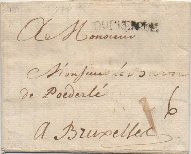 A Monsieur
Monsieur le Baron
de Poederlé
à Bruxelles
6